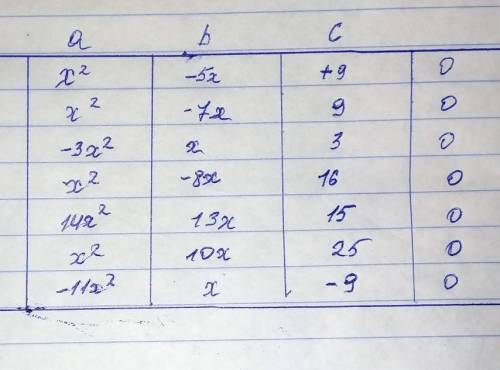 a b c
x² -5x +9 0
x² -7x 9 0
-3x² x 3 0
-x² -8x 16 0
14x² 13x 15 0
x² 10x 25 0
-11x² x -9 0